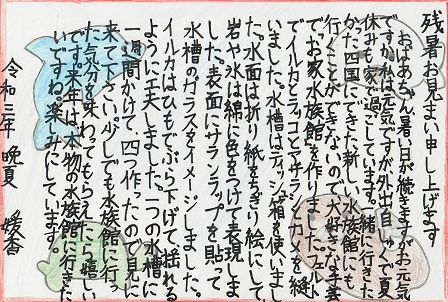 残暑お見まい申し上げます
おばあちゃん、暑い日が続きますがお元気
ですか。私は元気ですが外出自しゅくで夏
休みも家で過ごしています。一緒に行きた
かった四国にできた新しい水族館にも
行くことができないので、大好きな手芸
で“お家水族館”を作りました。フェルト
でイルカとラッコとアザラシとカメを縫
いました。水そうはティッシュ箱を使いまし
た。水面は折り紙をちぎり絵にして
岩や氷は綿に色をつけて表現しま
した。表面にサランラップを貼って
水槽のガラスをイメージしました。
イルカはひもでぶら下げて、揺れる
ように工夫しました。一つの水槽に
一週間かけて、四つ作ったので見に
来て下さい。少しでも水族館に行っ
た気分を味わってもらえたら嬉しい
です。来年は、本物の水族館に行きた
いですね。楽しみにしています。
令和三年 晩夏 媛香